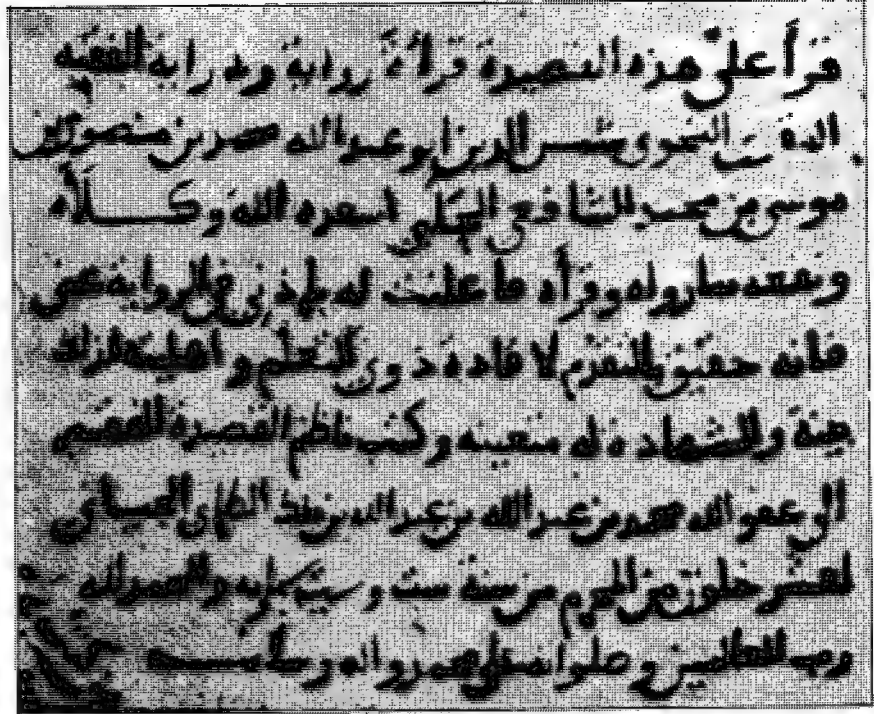 قرأ على هذه القصيدة قراءة رواية ودراية الفقيه
الثقة النحوي شمس الدين ابو عبدالله محمد بن منصور بن
موسى بن محمد الشافعي الحلبي اسعده الله وكلأه
وسمعته سايرا له وقرأه ما علمت له بهذ في الرواية عني
فانه حقيق بالتقدم لافادة ذوي التعلم و اهلية لذلك
بينة والشهادة له متعينة وكتب ناظم القصيدة الفقير
الى عفو الله محمد بن عبد الله بن عبد الله بن ملك الطاي الجياني
لعشر خلون من المحرم من سنة ست وستمايه والحمد لله
رب العالمين وصلواته على محمد واله وسلامه